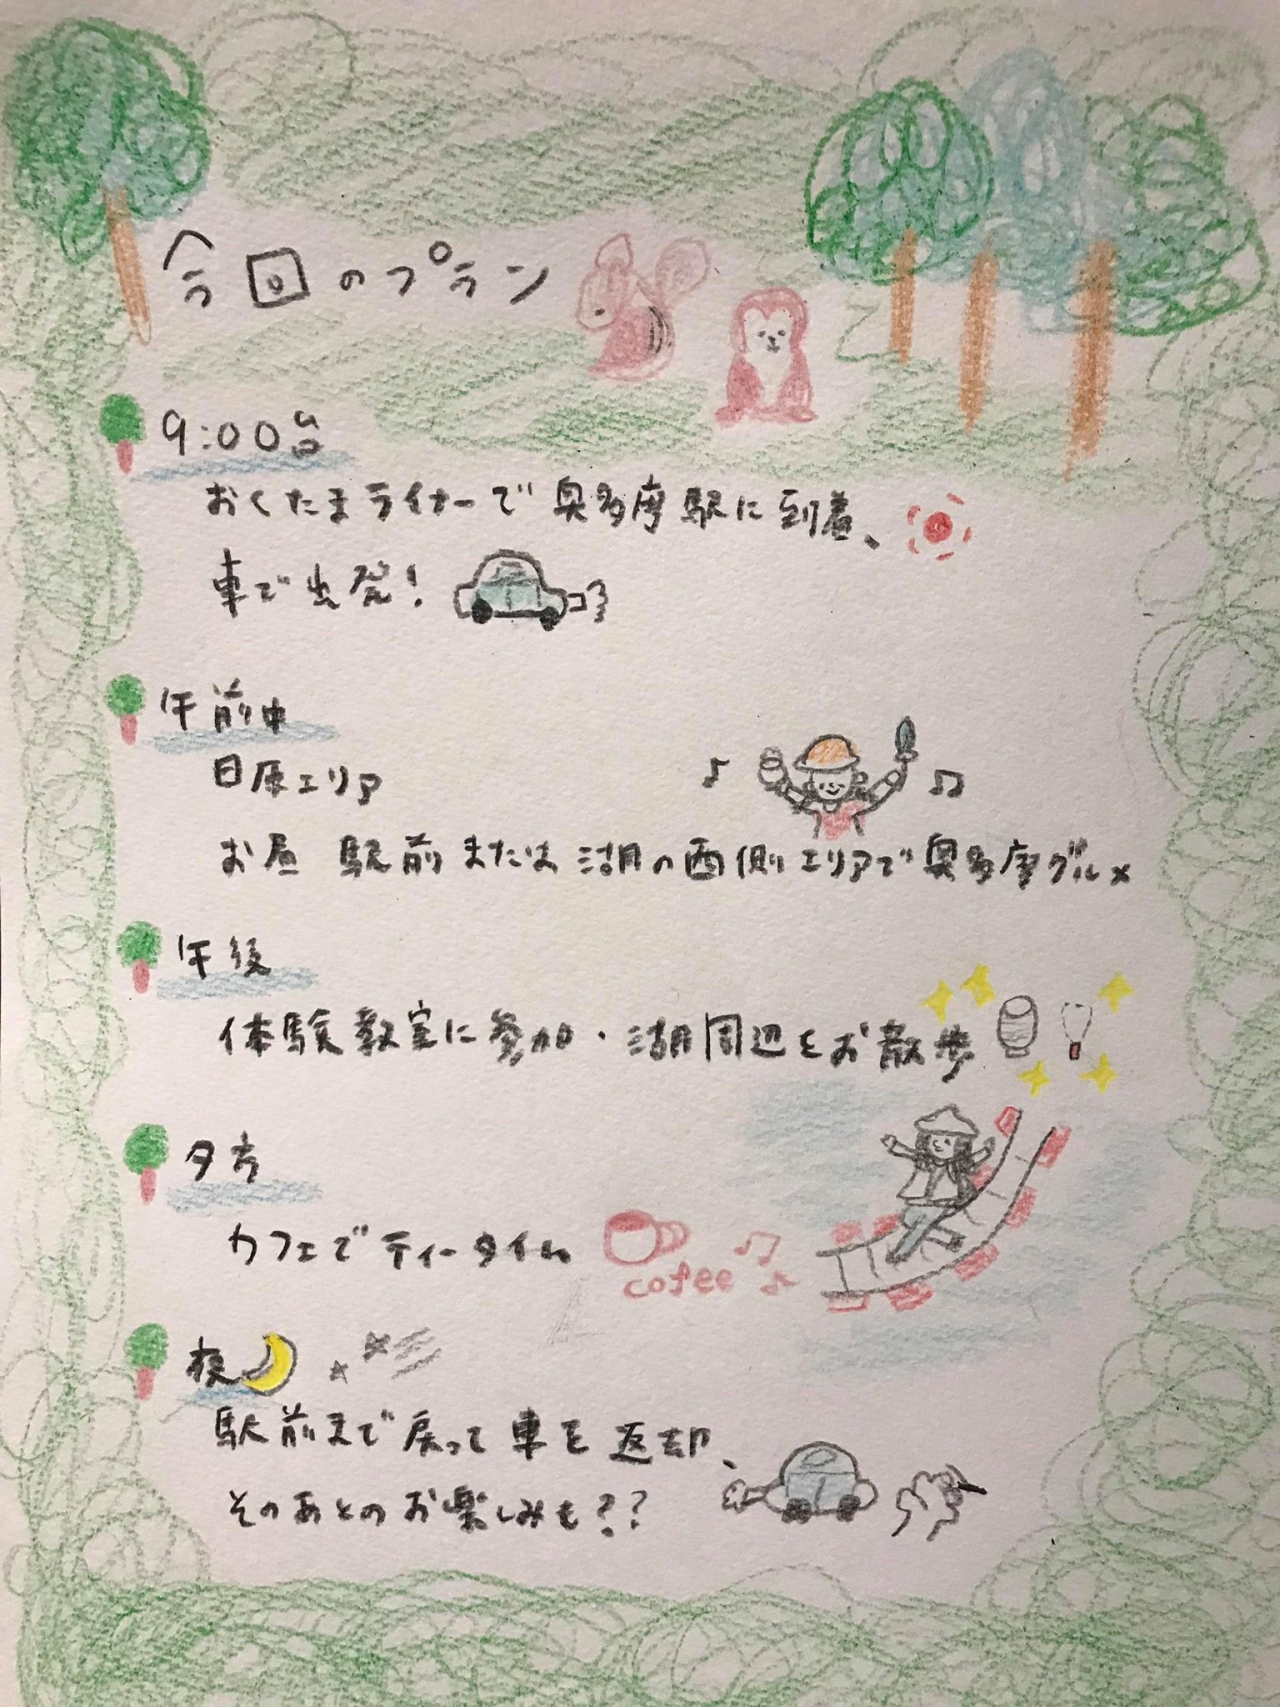 今回のプラン
9:00台
おくたまライナーで奥多摩駅に到着、
車で出発!
午前中
日原エリア
お昼 駅前または湖の西側エリアで奥多摩グルメ
午後
体験教室に参加・湖周辺をお散歩
夕方
カフェでティータイム
cofee
夜
駅前まで戻って車を返却、
そのあとのお楽しみも??